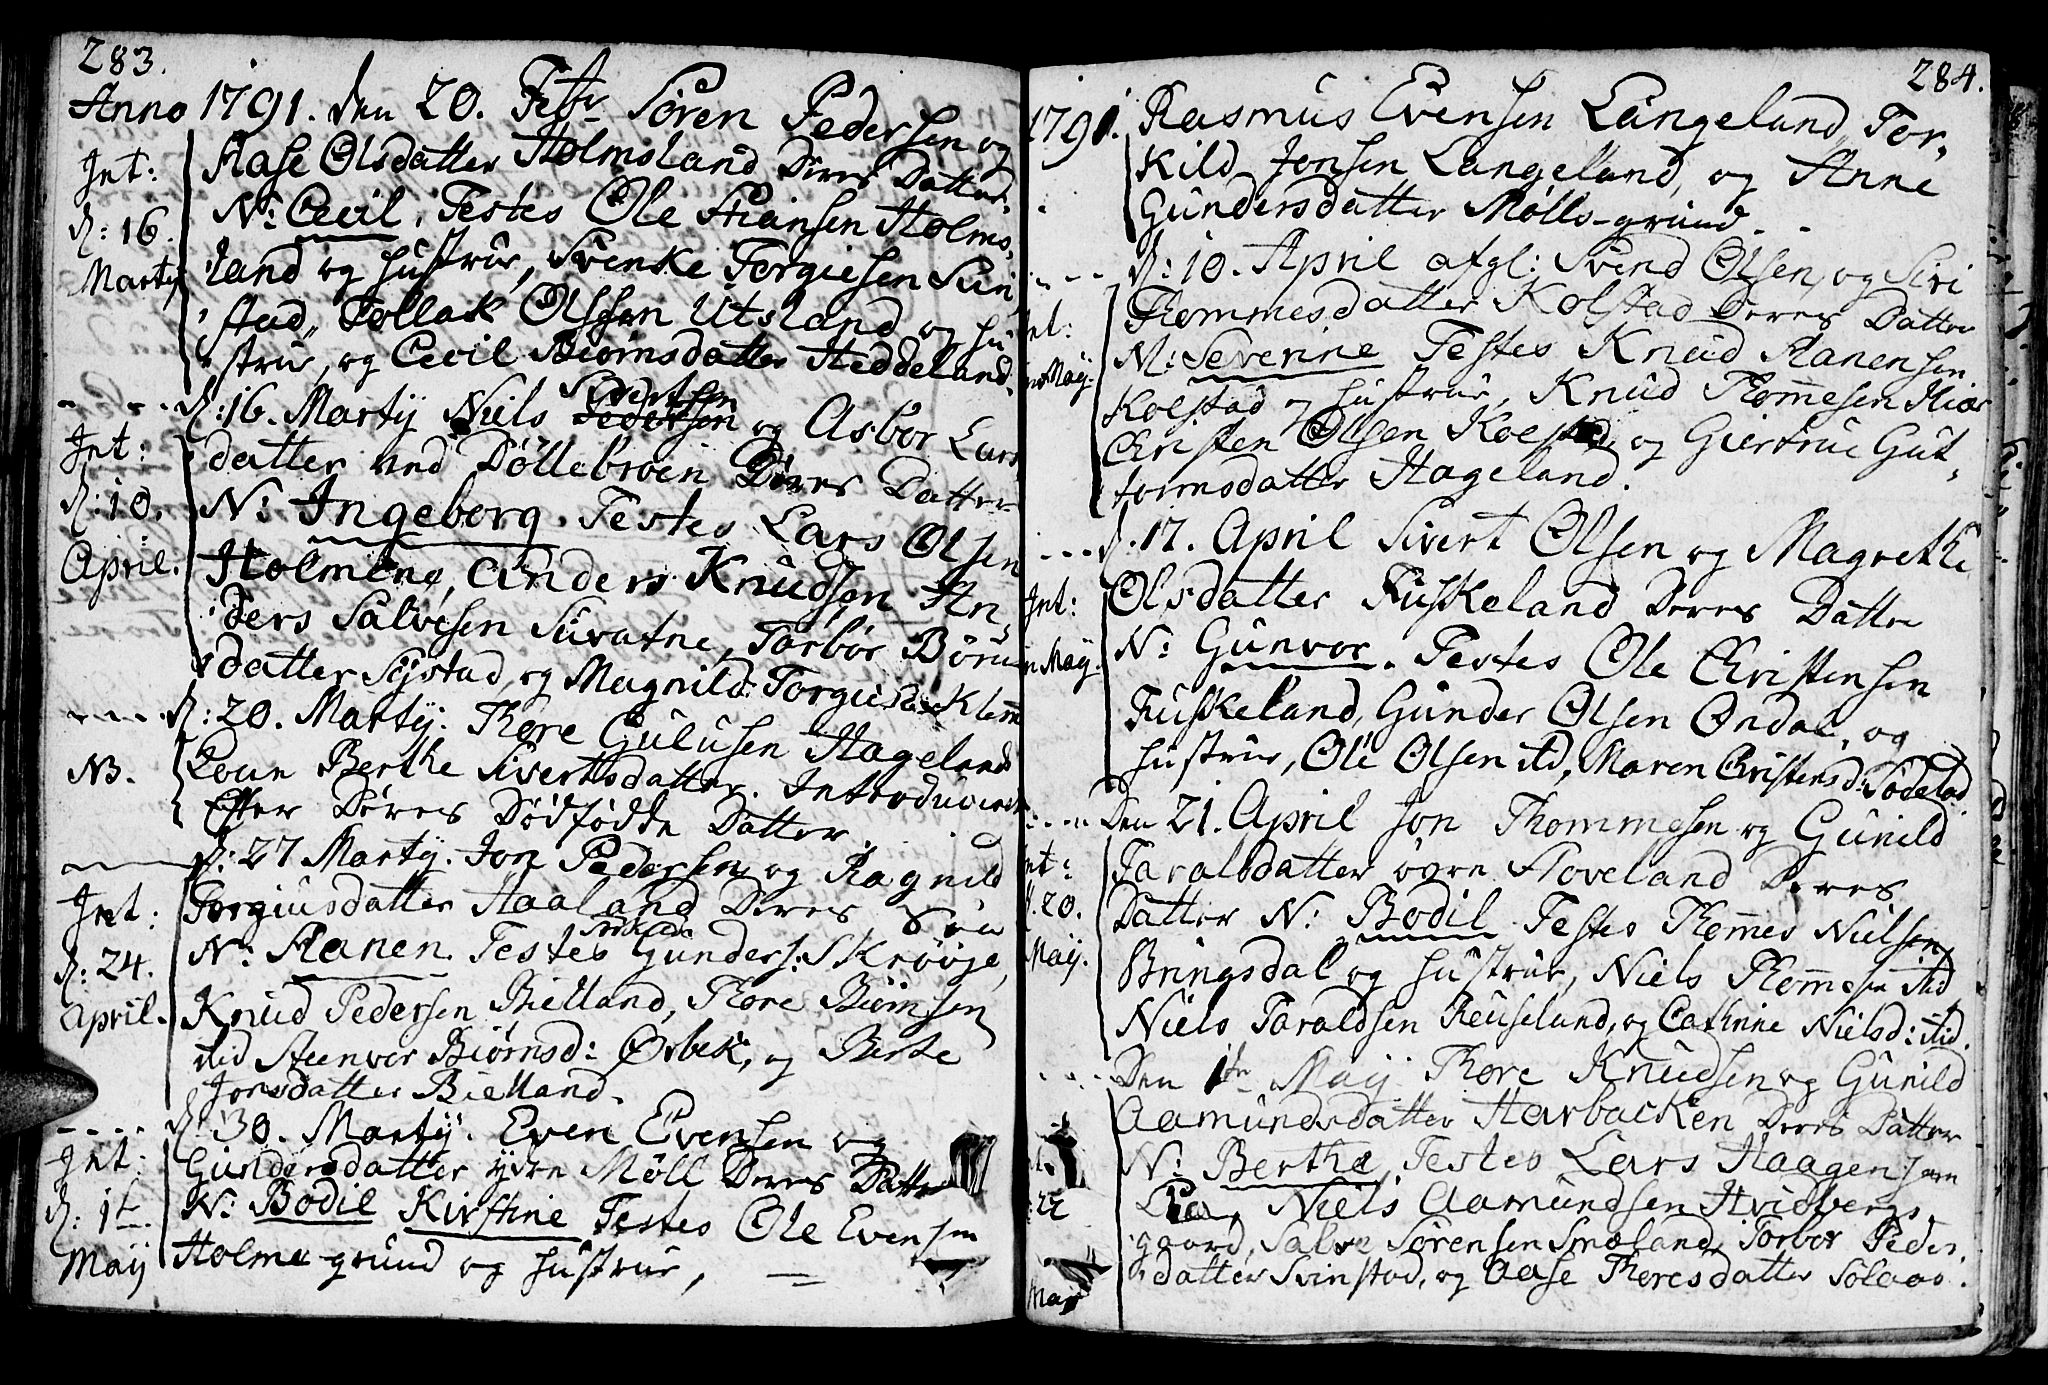 283.
Anno 1791. den 20. Febr Sören Pedersen og
Aase Olsdatter Holmsland Deres Datter.
Int:
N: Cecil, Testes Ole Stiansen Holms,
d: 16.
land og Hustrue, Svenke Torgiesen Sun
Marty
stad, Tollak Olssen Utsland og Hu
strue, og Cecil Biörnsdatter Heddeland.
d: 16. Marty Niels Sivertsen og Asbor Lars
Int:
datter ved Döllebroen Deres Datter
d: 10.
N: Ingeborg. Testes Lars Olsen
April.
Holmene, Anders Knudsen An,
ders Salvesen Sivatne, Torbör Börns
datter Systad, og Magnild Torgius
d: 20. Marty. Thore Gulusen Hageland
NB.
Koun Berthe Sivertsdatter. Introduceret
Efter Deres Dödfödde Datter.
d: 27 Marty. Jon Pedersen og Ragnild
Int:
Torgiusdatter Haaland Deres Sön
N: Aanen. Testes Gunders: Skröyje,
d: 24.
April.
Knud Pedersen Bielland, Thore Biörnsen
ibid Steenvor Biörnsd: Örbek, og Berte
Jonsdatter Bielland.
d: 30. Marty. Even Evensen og
Int:
Gundersdatter ydre Möll Deres Datter
d: 1te.
N: Bodil Kirstine Testes Ole Evensen
Maij
Holme-grund og Hustrue,
284.
1791. Rasmus Evensen Langeland, Tor,
kild Jonsen Langeland, og Anne
Gundersdatter Mölls-grund.
d: 10. April afgl: Svend Olsen, og Siri
Int:
Thommesdatter Kolstad Deres Datter
N: Severine Testes Knud Aanensen
Maij.
Kolstad og Hustrue, Knud Thommesen
Christen Olsen Kolstad, og Giertrue Gut,
tormsdatter Hageland.
d. 17. April Sivert Olsen og Magrethe
Int:
Olsdatter Fuskeland Deres Datter
Maij.
N: Gunvor. Testes Ole Christensen
Fuskeland, Gunder Olsen Ondal, og
Hustrue, Ole Olsen ibd, Maren Christensd:
Den 21. April Jon Thommesen og Gunild
Int:
Taralsdatter övre Hoveland Deres
d. 20.
Datter N: Bodil Testes Thommes Nielsen
Maij.
Bringsdal og Hustrue, Niels Thommesen ibd
Niels Taraldsen Reuseland, og Cathrine Nielsd: ibid.
Den 1te Maij Thore Knudsen og Gunild
Aamundsdatter Harbacken Deres Datter
N: Berthe, Testes Lars Haagensen
22
Lia, Niels Aamundsen Hvidbergs
gaard, Salve Sörensen Smeland, Torbor Peders
datter Svinstad, og Aase Thoresdatter Solaas.
Maij